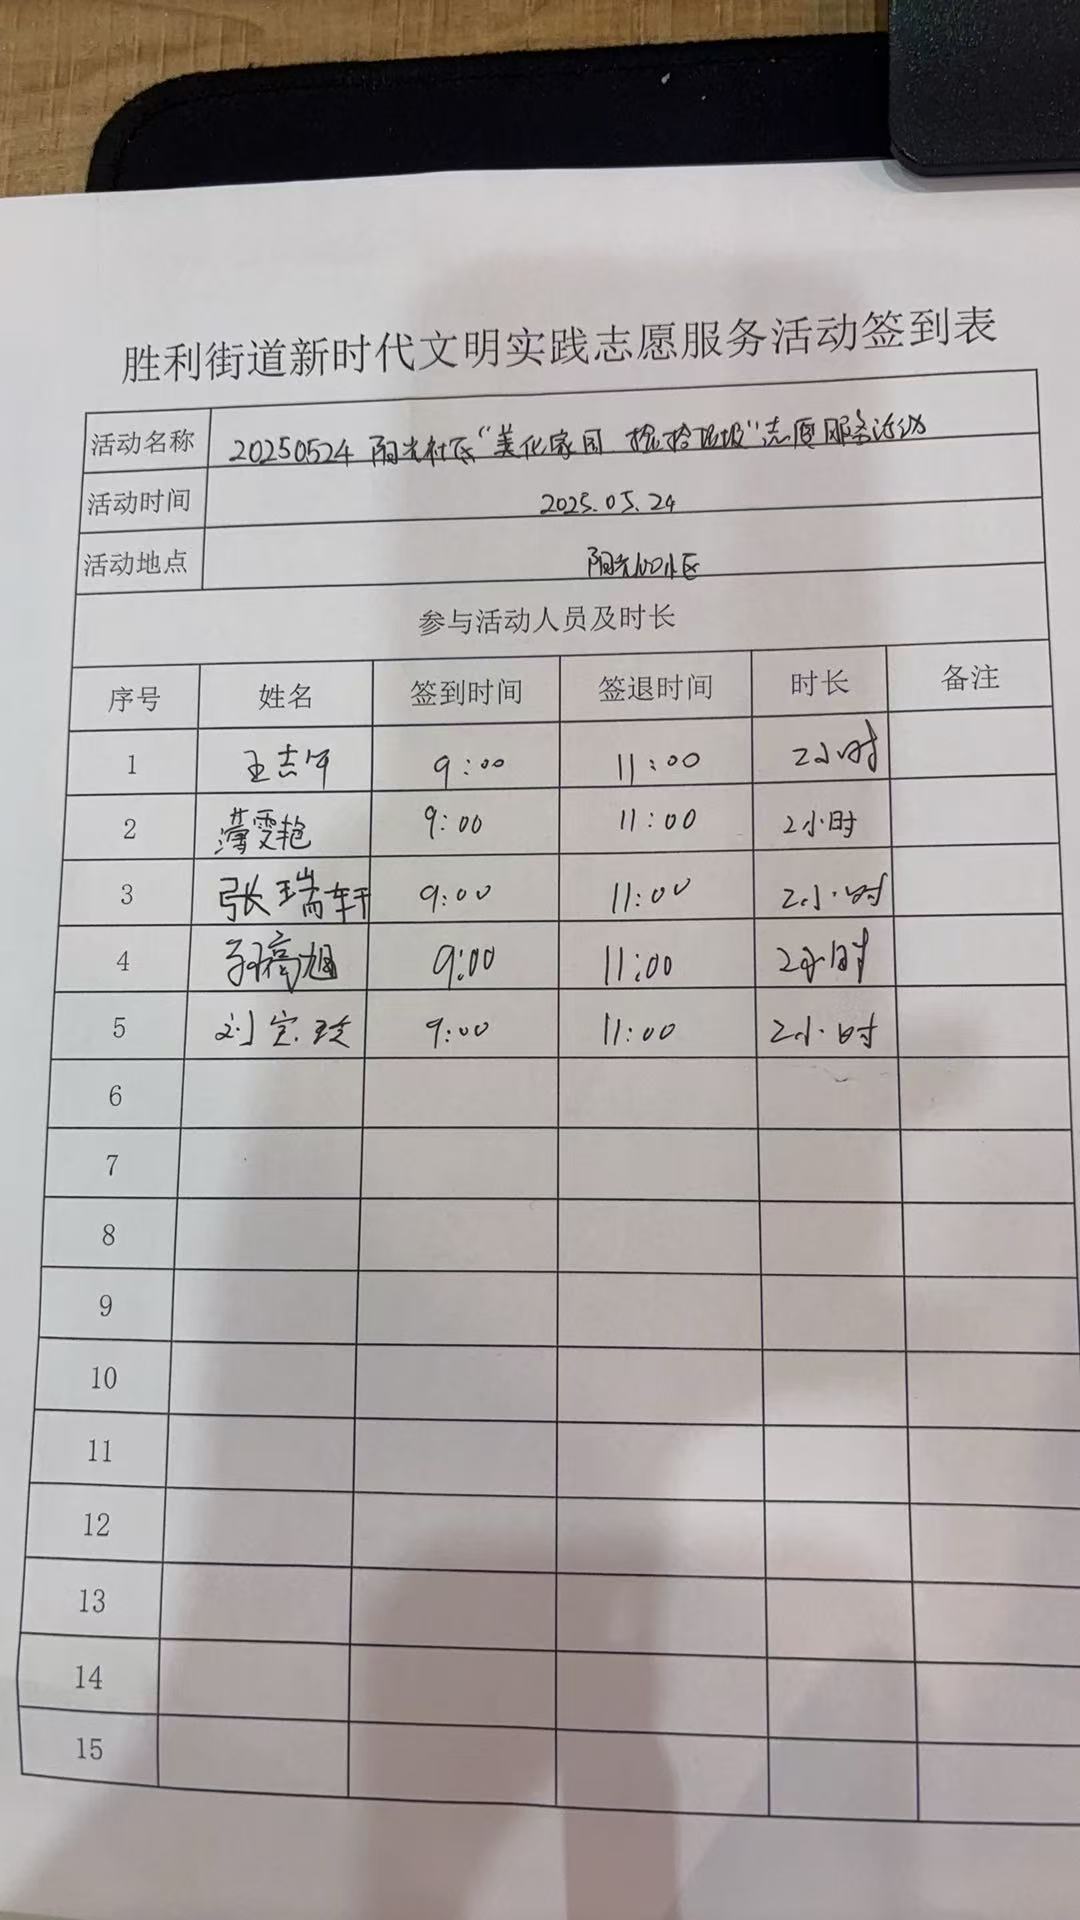 胜利街道新时代文明实践志愿服务活动签到表
活动名称 20250524 阳光社区“美化家园 捡拾垃圾”志愿服务活动
活动时间 2025.05.24
活动地点 阳光100小区
参与活动人员及时长
序号 姓名 签到时间 签退时间 时长 备注
1 王志 9:00 11:00 2小时
2 薄雯艳 9:00 11:00 2小时
3 张瑞轩 9:00 11:00 2小时
4 孙高旭 9:00 11:00 2小时
5 刘宝玲 9:00 11:00 2小时
6
7
8
9
10
11
12
13
14
15